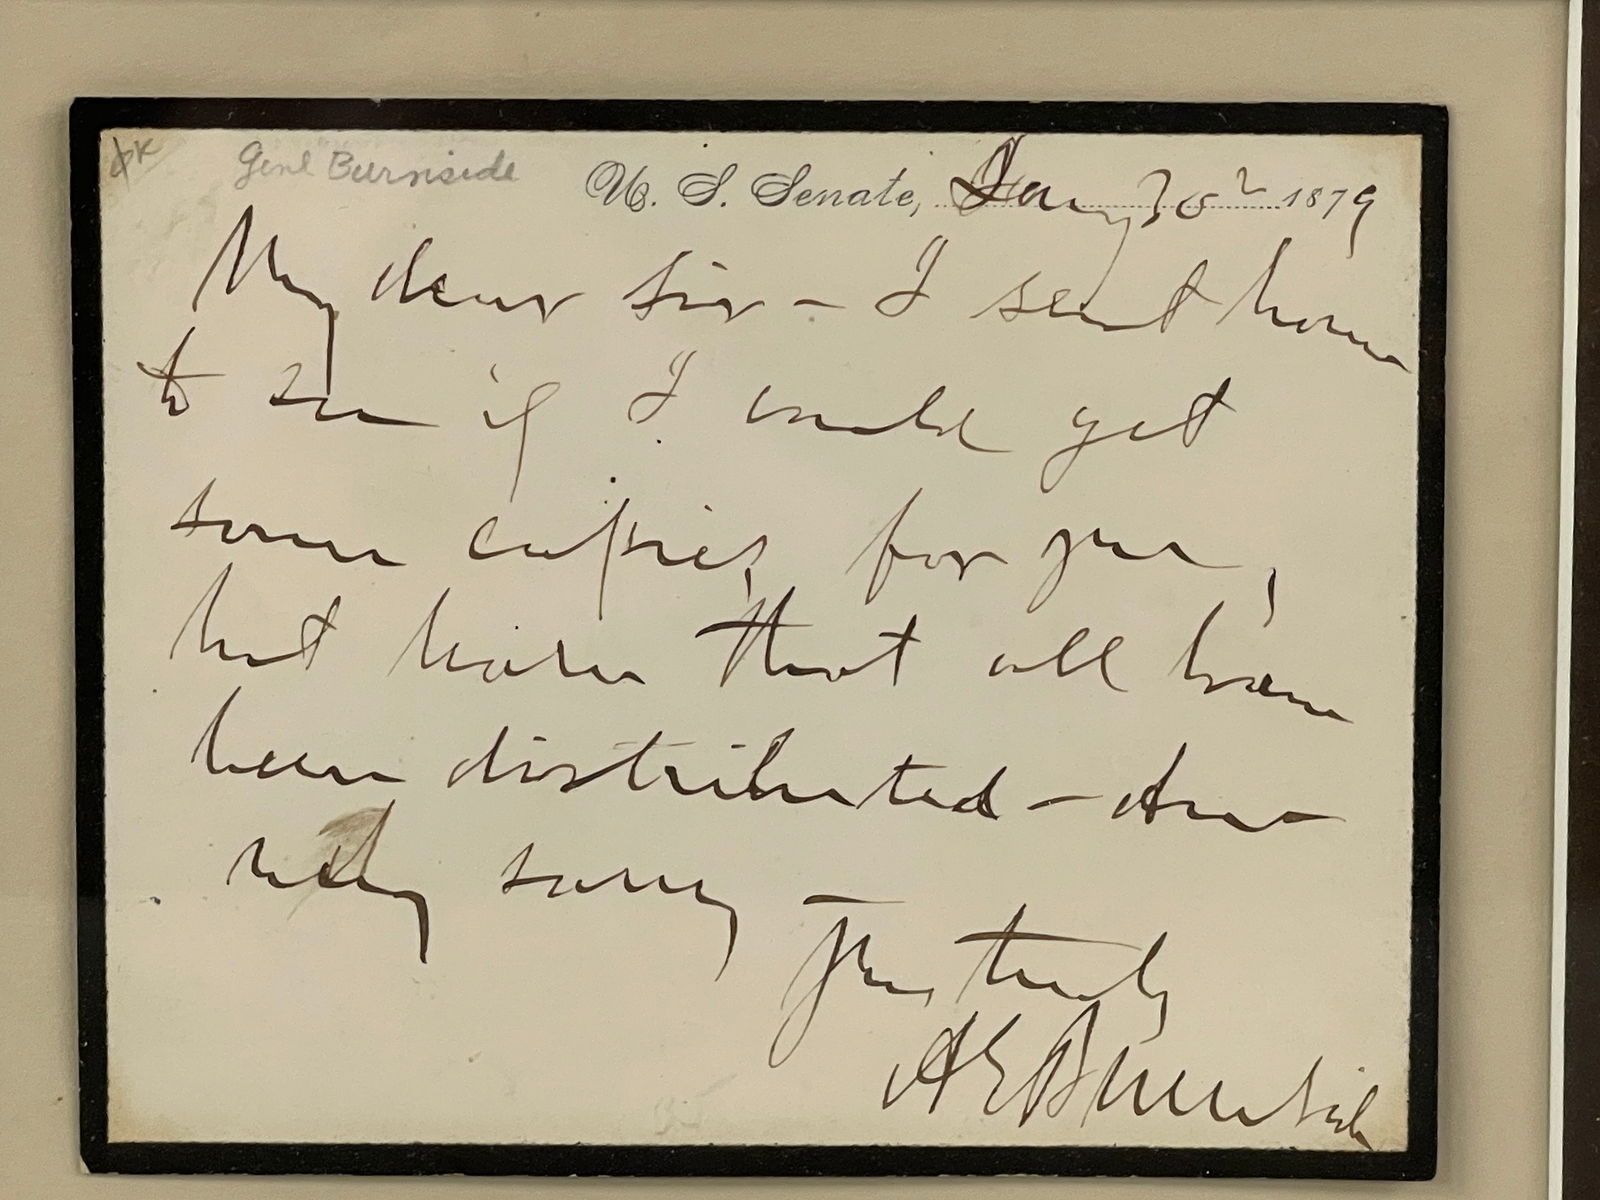 Genl Burnside
U. S. Senate, Jany 30 1879
My dear Sir – I sent home
to see if I could get
some copies for you,
but learn that all have
been distributed – Am
very sorry –
Yours truly
A E Burnside